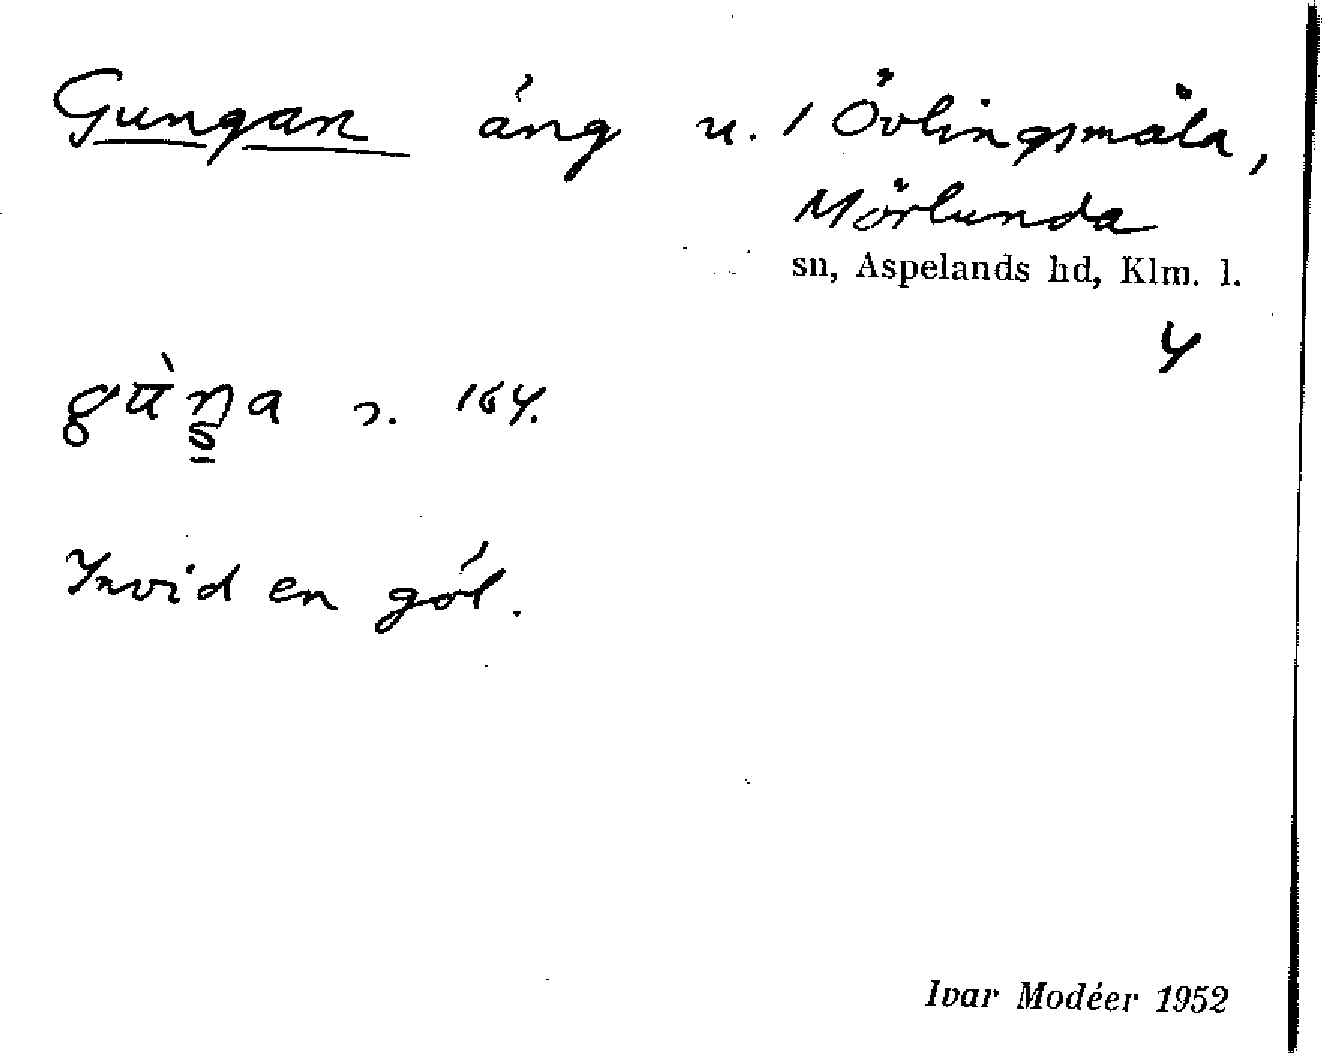 Gungan äng u. 1 Övlingsmåla,
Mörlunda
sn, Aspelands hd, Klm. l.
4
s. 164.
Invid en göl.
Ivar Modéer 1952